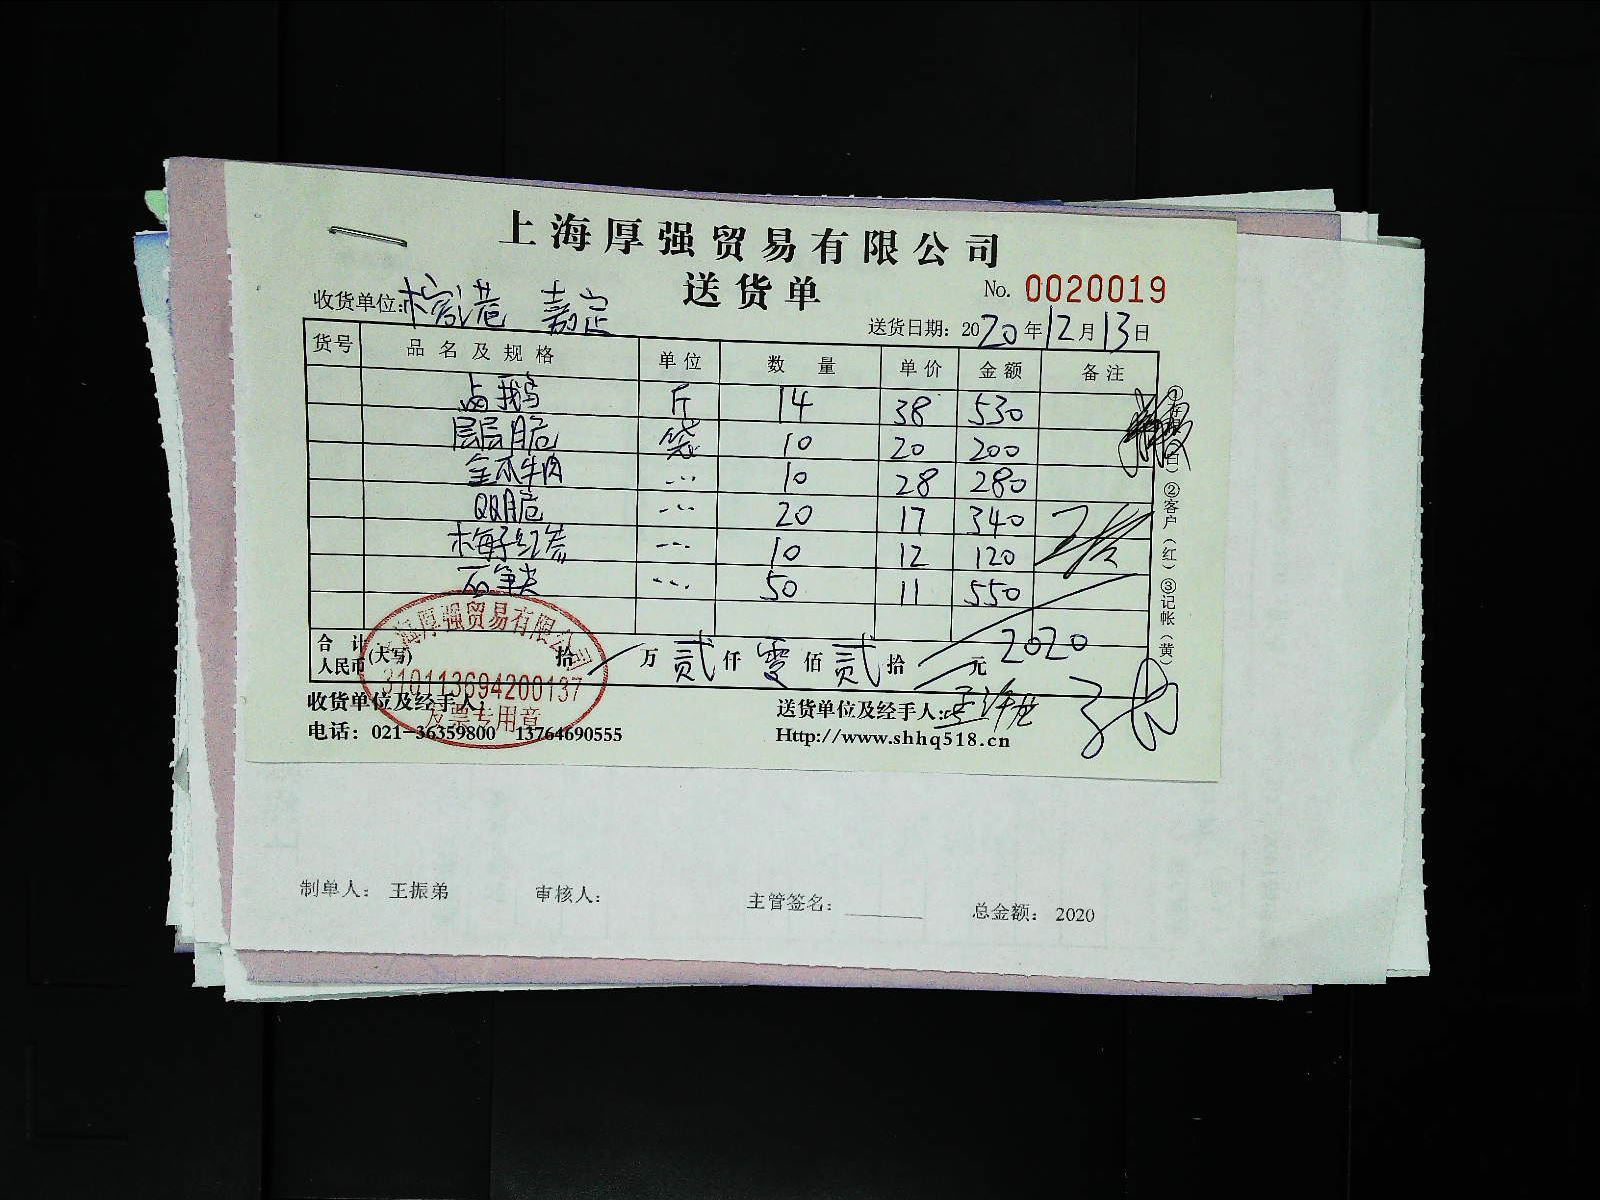 上海厚强贸易有限公司
送货单
No. 0020019
收货单位: 港 嘉定
送货日期: 2020年12月13日
货号 品名及规格 单位 数量 单价 金额 备注
卤鹅 斤 14 38 530
层层脆 袋 10 20 200
金瓜牛肉 ... 10 28 280
QQ脆 ... 20 17 340
梅子红 ... 10 12 120
... 50 11 550
合计人民币(大写) 拾 万 贰 仟 零 佰 贰 拾 元 2020
上海厚强贸易有限公司
310113694200137
发票专用章
收货单位及经手人:
送货单位及经手人:
电话: 021-36359800 13764690555
Http://www.shhq518.cn
②客户(红)③记帐(黄)
制单人: 王振弟 审核人: 主管签名: 总金额: 2020